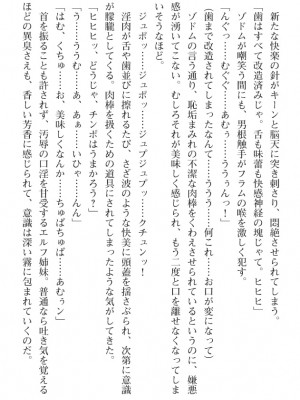 新たな快楽の針がキーンと脳天に突き刺さり、悶絶させられてしまう。
「歯はすべて改造済みじゃ。舌も味蕾も快感神経の塊じゃぞ。ヒヒヒ」
「んぐぅ……むぐぅ……うぅぅんっ！」
ゾドムが嘲笑う間にも、男根触手がフラムの咲を激しく犯す。
（歯まで改造されてしまったなんて……ううう……何これ……お口が変になって）
ゾドムの言う通り、恥垢まみれの不潔な肉棒をくわえさせられているというのに、嫌悪
感が湧いてこない。むしろそれが美味しく感じられ、もう二度と口を離せなくなってしま
いそうなほど。
ジュポッ……ジュポッ……ジュプジュプッ……クチュンッ！
淫肉が舌や歯並びに擦れるたび、さざ波のような快美に頭蓋を揺さぶられ、次第に意識
が朦朧としてくる。肉棒を扱くための道具にされてしまったような気がしてきた。
「ヒヒヒッ、どうじゃ、チンポはうまかろう？」
「う……ううむ……あ、あぁ……いひゃ……んん」
「はむ、くちゅ……お、美味しくなんか……ちゅぱちゅぱ……あむぅン」
首を振ることも許されず、汚辱の口淫を甘受するエルフ姉妹。普通なら吐き気を覚える
ほどの異臭さえも、香しい芳香に感じられて、意識は深い霧に包まれていくのだ。